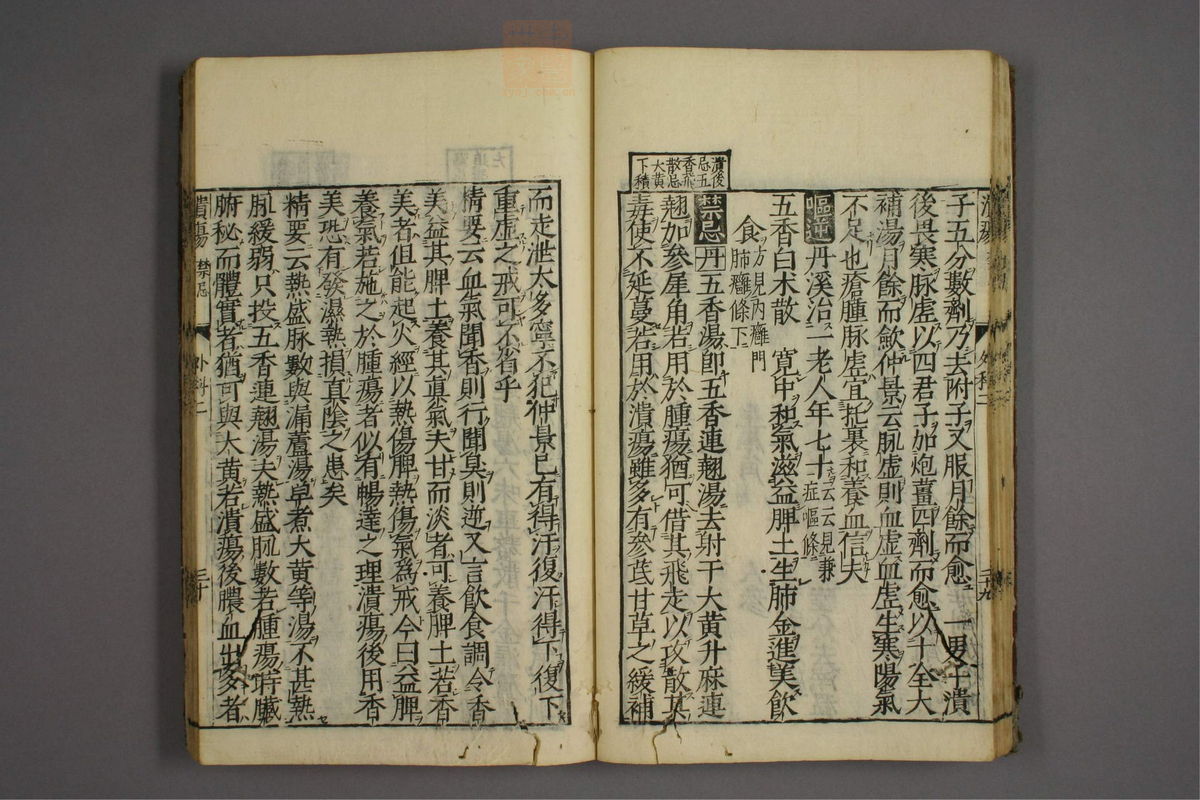 子五分數劑乃去附子又服月餘而愈 一男子潰
後畏寒脉虚以四君子加炮薑四劑而愈以十全大
補湯月餘而歛仲景云脈虚則血虚血虚生寒陽氣
不足也瘡腫脉虚宜托裹和養血信夫
嘔逆 丹溪治一老人年七十云云見兼症嘔條
五香白朮散 寛中和氣滋益脾土生肺金進美飲
食 方見内癰門肺癰條下
潰後忌五香飛散忌大黄下積
禁忌 丹 五香湯即五香連翹湯去射干大黄升麻連
翹加参犀角若用於腫瘍猶可借其飛走以攻散其
毒使不延蔓若用於潰瘍雖多有参芪甘草之緩補
潰瘍 外科二 二十九
而走泄太多寧不犯仲景已有得汗復汗得下復下
重虚之戒可不省乎
精要云血氣聞香則行聞臭則逆又言飲食調令香
美益其脾土養其眞氣夫甘而淡者可養脾土若香
美者但能起火經以熱傷脾熱傷氣為戒今曰益脾
養氣若施之於腫瘍者似有暢達之理潰瘍後用香
美恐有發濕熱損眞陰之患矣
精要云熱盛脉數與漏蘆湯卓煮大黄等湯不甚熱
脈緩弱只投五香連翹湯夫熱盛脈數若腫瘍時臓
腑秘而體實者猶可與大黄若潰瘍後膿血出多者
潰瘍 禁忌 外科二 三十